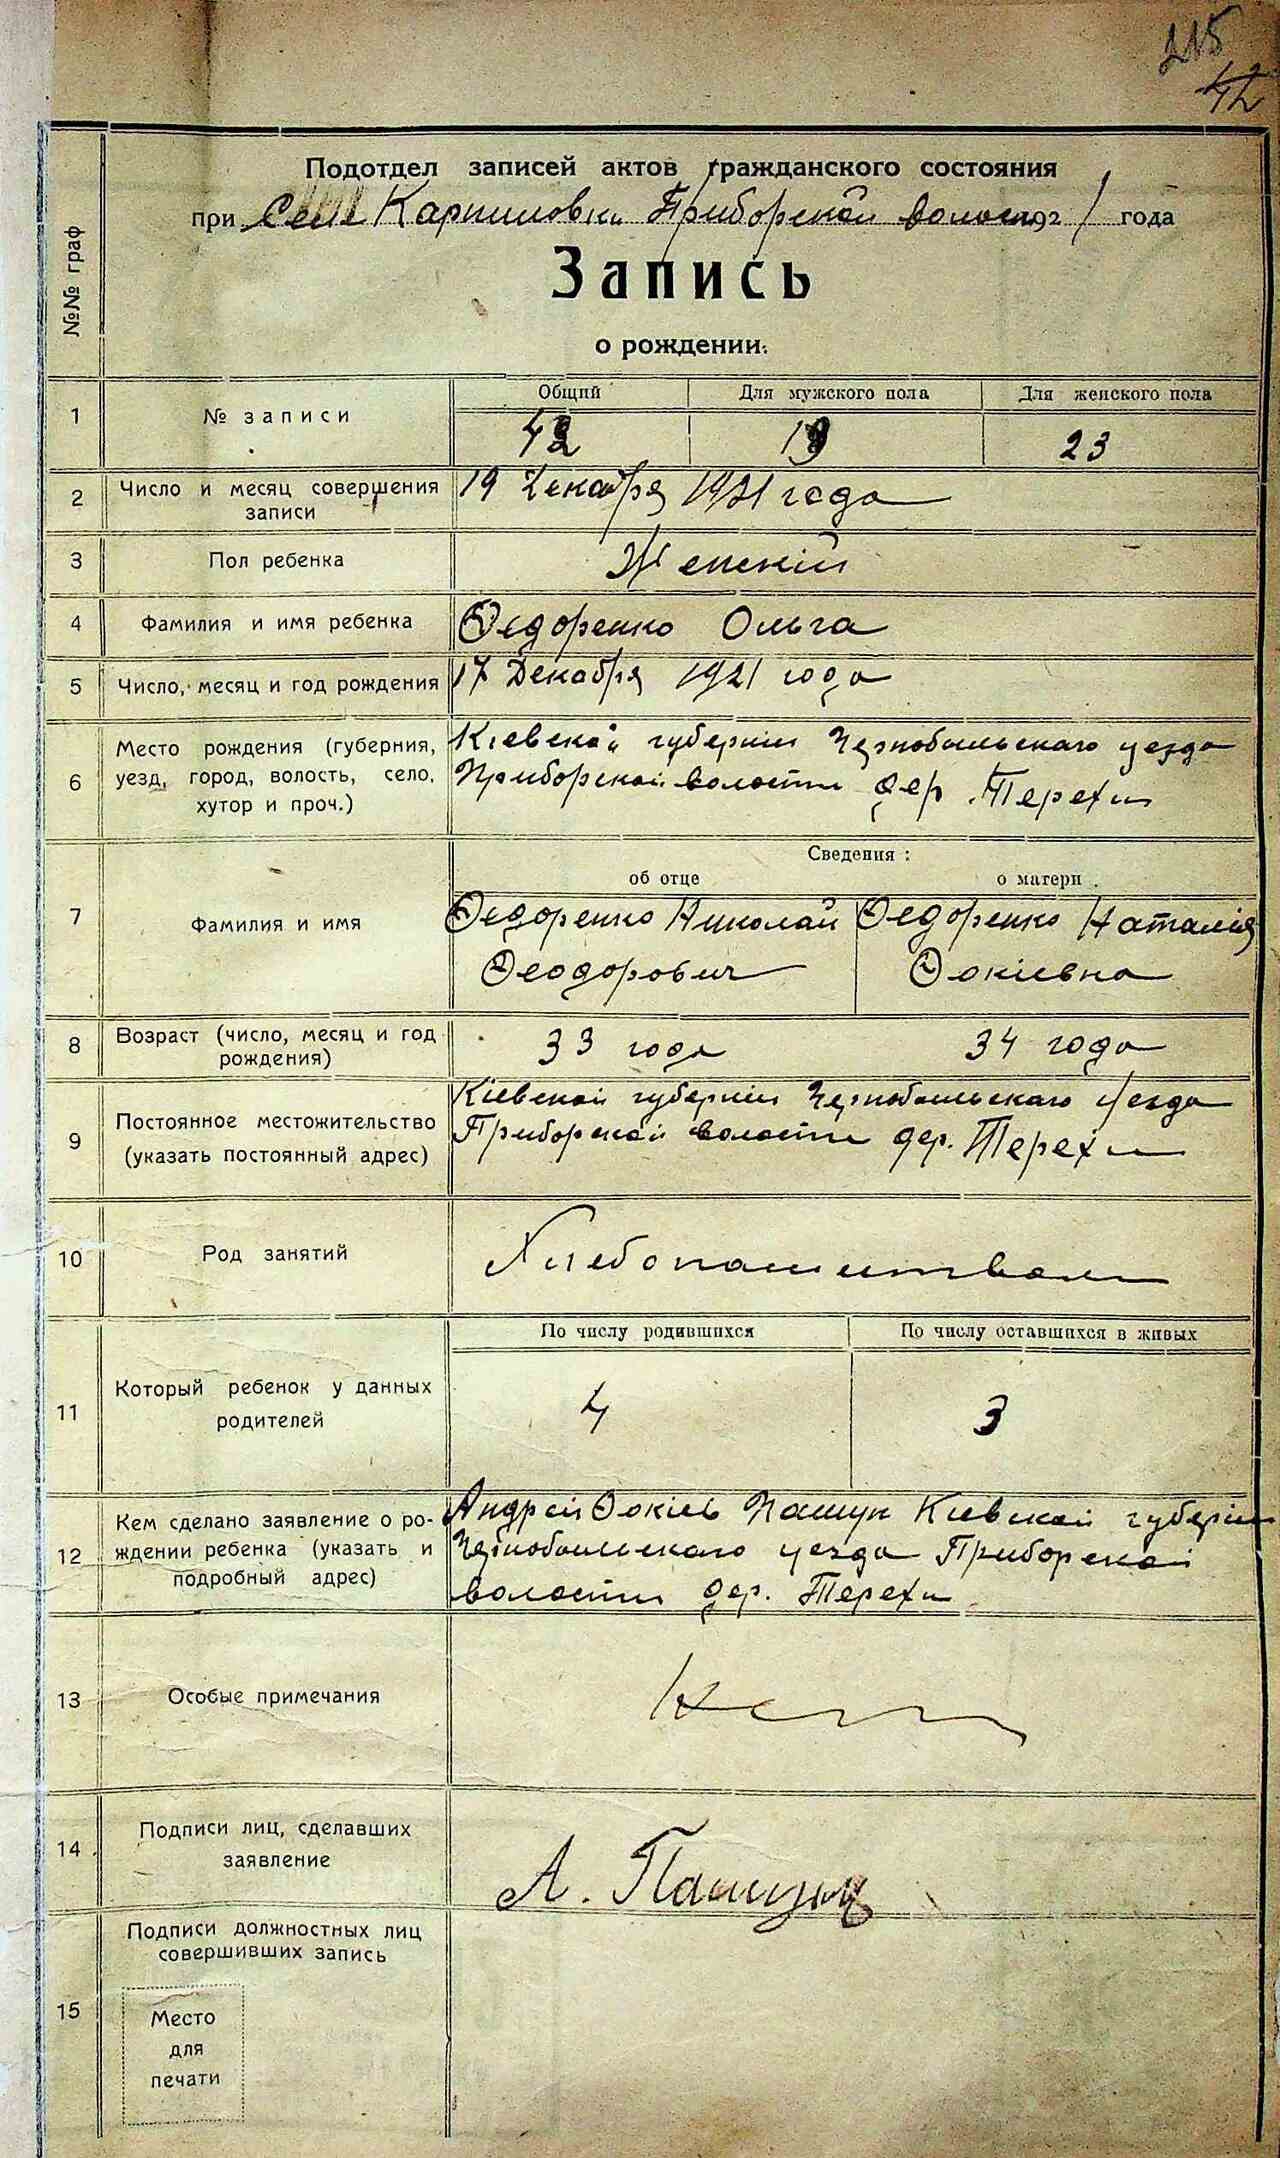 215
42
Подотдел записей актов гражданского состояния
при Селе Карпиловки Приборской волости 1921 года
Запись
о рождении.
№№ граф
1 № записи
Общий Для мужского пола Для женского пола
42 19 23
2 Число и месяц совершения записи
19 Декабря 1921 года
3 Пол ребенка
Женскій
4 Фамилия и имя ребенка
Ѳедоренко Ольга
5 Число, месяц и год рождения
17 Декабря 1921 года
6 Место рождения (губерния,
уезд, город, волость, село,
хутор и проч.)
Кіевской губерніи Чернобыльскаго уезда
Приборской волости дер. Терехи
Сведения:
об отце о матери
7 Фамилия и имя
Ѳедоренко Николай Ѳедоренко Наталія
Ѳеодорович Ѳокіевна
8 Возраст (число, месяц и год
рождения)
33 года 34 года
9 Постоянное местожительство
(указать постоянный адрес)
Кіевской губерніи Чернобыльскаго уезда
Приборской волости дер. Терехи
10 Род занятий
Хлебопашитвом
11 Который ребенок у данных
родителей
По числу родившихся По числу оставшихся в живых
4 3
12 Кем сделано заявление о ро-
ждении ребенка (указать и
подробный адрес)
Андрей Ѳокіев Пашук Кіевской губерніи
Чернобыльскаго уезда Приборской
волости дер. Терехи
13 Особые примечания
Нет
14 Подписи лиц, сделавших
заявление
А. Пашук
15 Подписи должностных лиц
совершивших запись
Место
для
печати